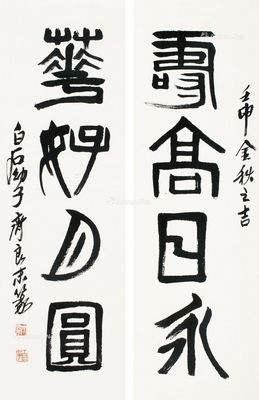 壬申金秋之吉
壽高日永
華好月圓
白石幼子齊良末篆